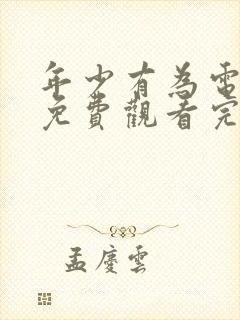 年少有為電
免費觀看完
孟慶雲